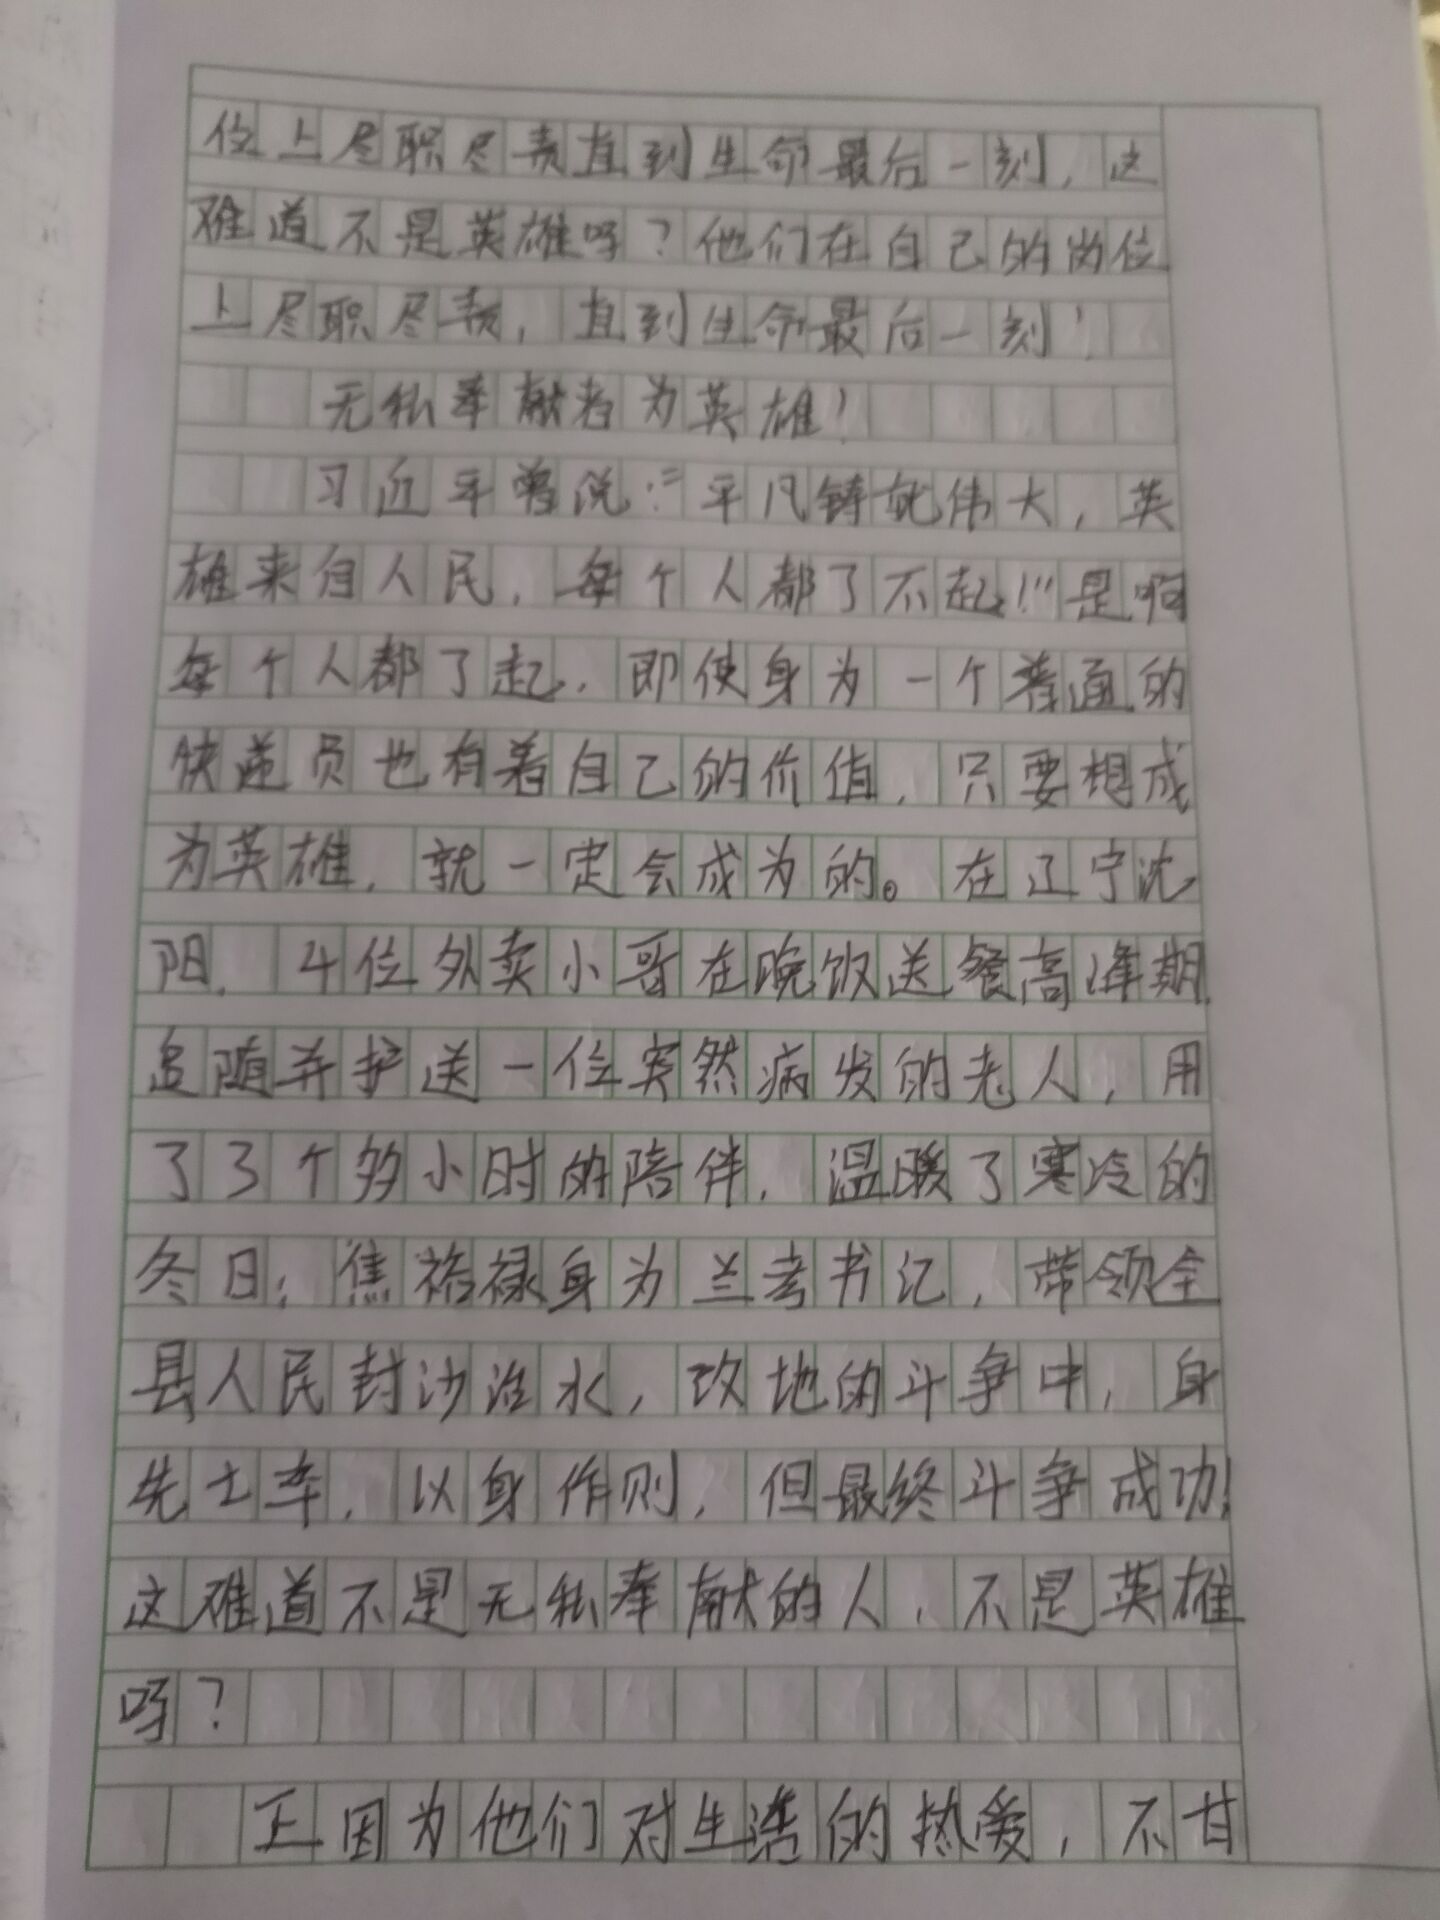 位上尽职尽责直到生命最后一刻，这
难道不是英雄吗？他们在自己的岗位
上尽职尽责，直到生命最后一刻！
无私奉献者为英雄！
习近平曾说："平凡铸就伟大，英
雄来自人民，每个人都了不起！"是啊
每个人都了起，即使身为一个普通的
快递员也有着自己的价值，只要想成
为英雄，就一定会成为的。在辽宁沈
阳，4位外卖小哥在晚饭送餐高峰期，
追随并护送一位突然病发的老人，用
了3个多小时的陪伴，温暖了寒冷的
冬日；焦裕禄身为兰考书记，带领全
县人民封沙治水，改地的斗争中，身
先士卒，以身作则，但最终斗争成功！
这难道不是无私奉献的人，不是英雄
吗？
正因为他们对生活的热爱，不甘